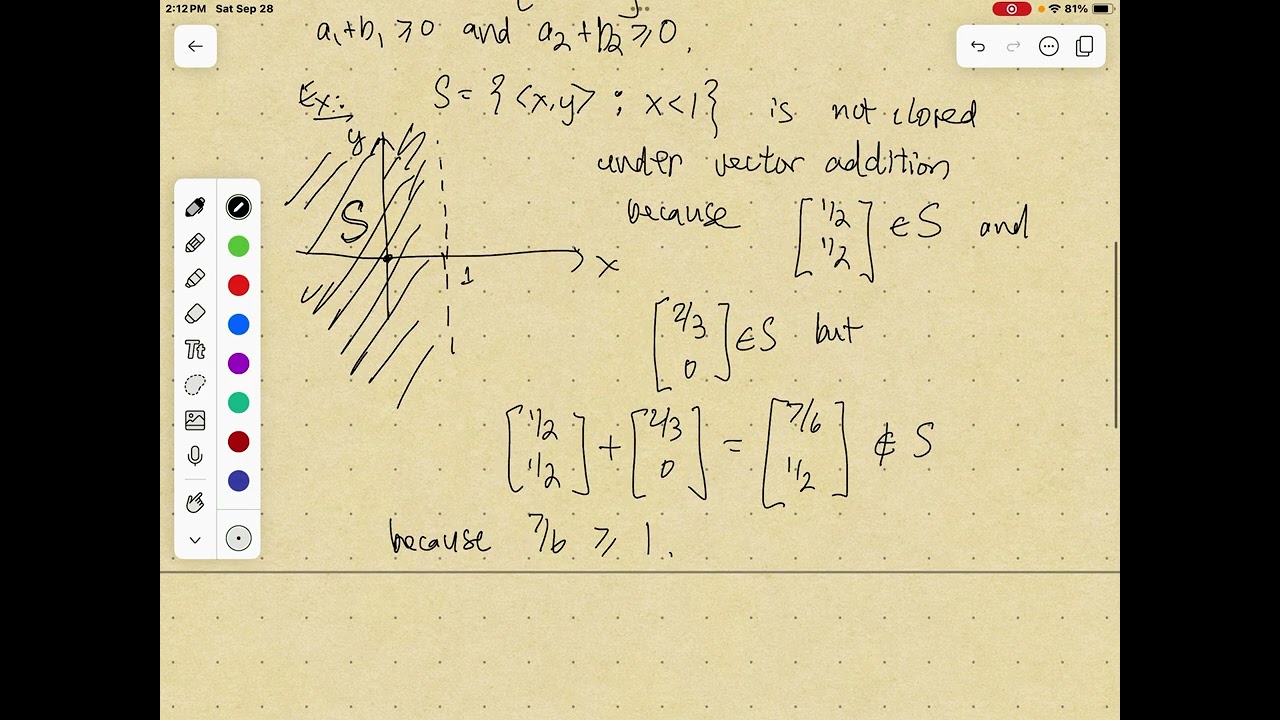 2:12 PM Sat Sep 28 81%
a₁+b₁ ⩾0 and a₂+b₂ ⩾0.
Ex: S = { <x,y> : x<1 } is not closed
under vector addition
because [1/2 1/2] ∈ S and
y
S
1
x
[2/3 0] ∈ S but
[1/2 1/2] + [2/3 0] = [7/6 1/2] ∉ S
because 7/6 ⩾ 1.
Tt